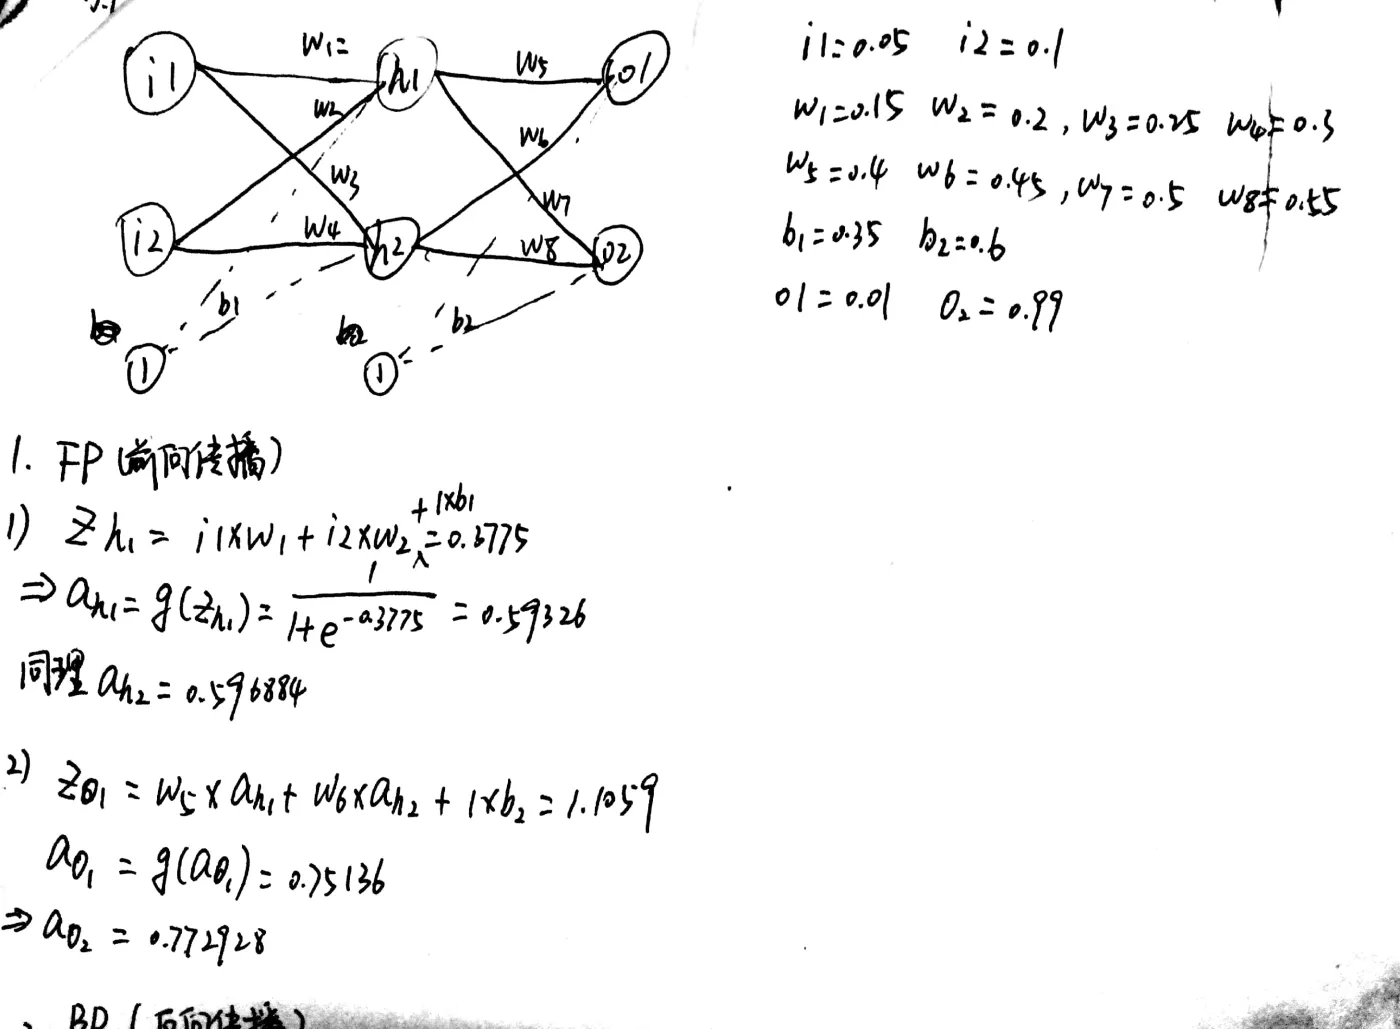 i1 w1= h1 w5 o1
w2 w6
w3 w7
i2 w4 h2 w8 o2
b1 b2
1 1
i1=0.05 i2=0.1
w1=0.15 w2=0.2, w3=0.25 w4=0.3
w5=0.4 w6=0.45, w7=0.5 w8=0.55
b1=0.35 b2=0.6
o1=0.01 O2=0.99
1. FP (前向传播)
1) Zh1 = i1×w1+i2×w2+1×b1=0.3775
⇒ah1=g(zh1)=1/(1+e^-0.3775)=0.59326
同理 ah2=0.596884
2) Zθ1 = w5×ah1+w6×ah2+1×b2=1.1059
aθ1 = g(aθ1)=0.75136
⇒aθ2 = 0.772928
BP (反向传播)